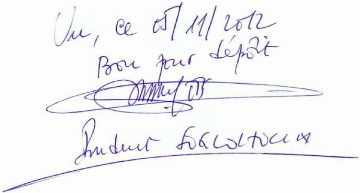 Vu, ce 05/11/2012
Bon pour dépôt
Prudent